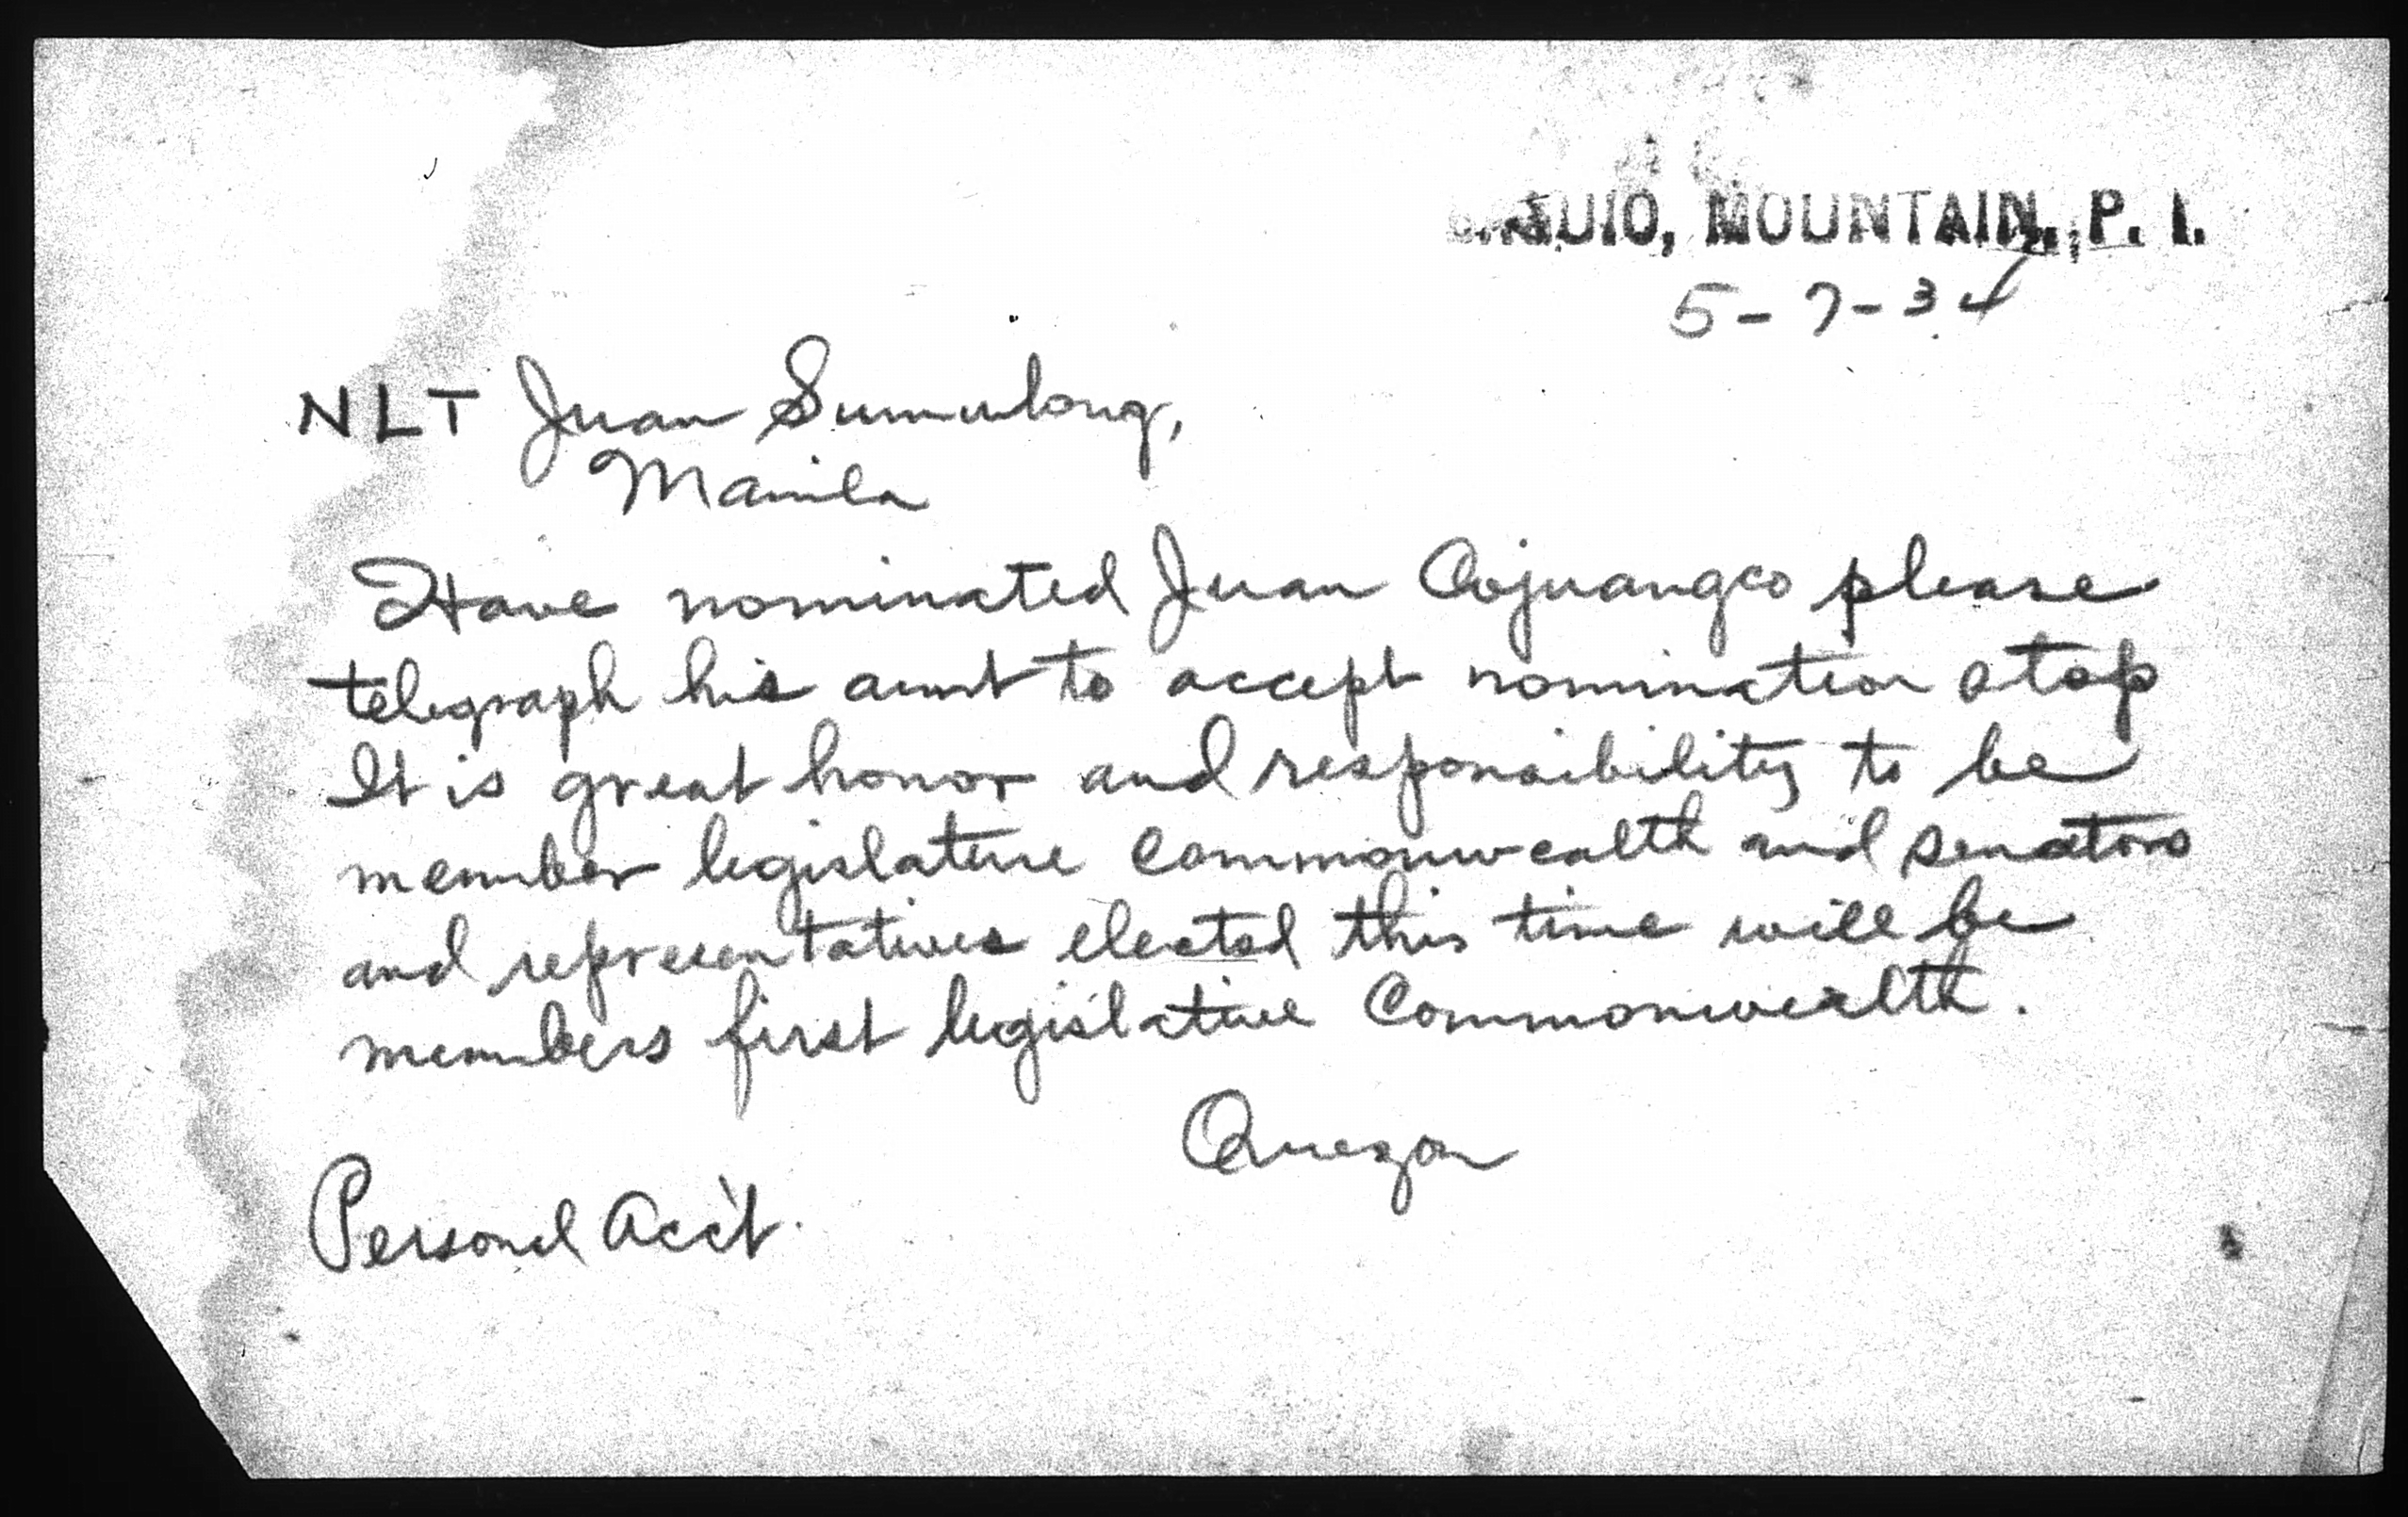 BAGUIO, MOUNTAIN, P. I.
5-7-34
NLT Juan Sumulong,
Manila
Have nominated Juan Cojuangco please
telegraph his aunt to accept nomination stop
It is great honor and responsibility to be
member legislature Commonwealth and senators
and representatives elected this time will be
members first legislative Commonwealth.
Quezon
Personal Acc't.